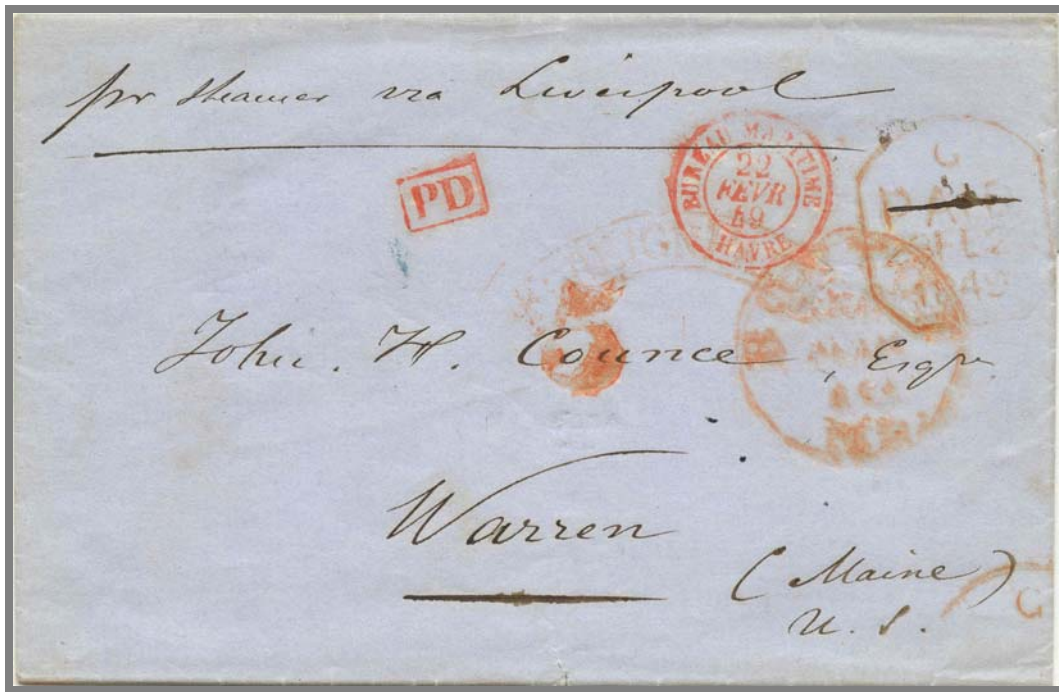 pr steamer via Liverpool
PD
BUREAU MARITIME
22
FEVR
49
HAVRE
PAID
1849
5
John. H. Counce, Esqr
Warren
(Maine)
U. S.